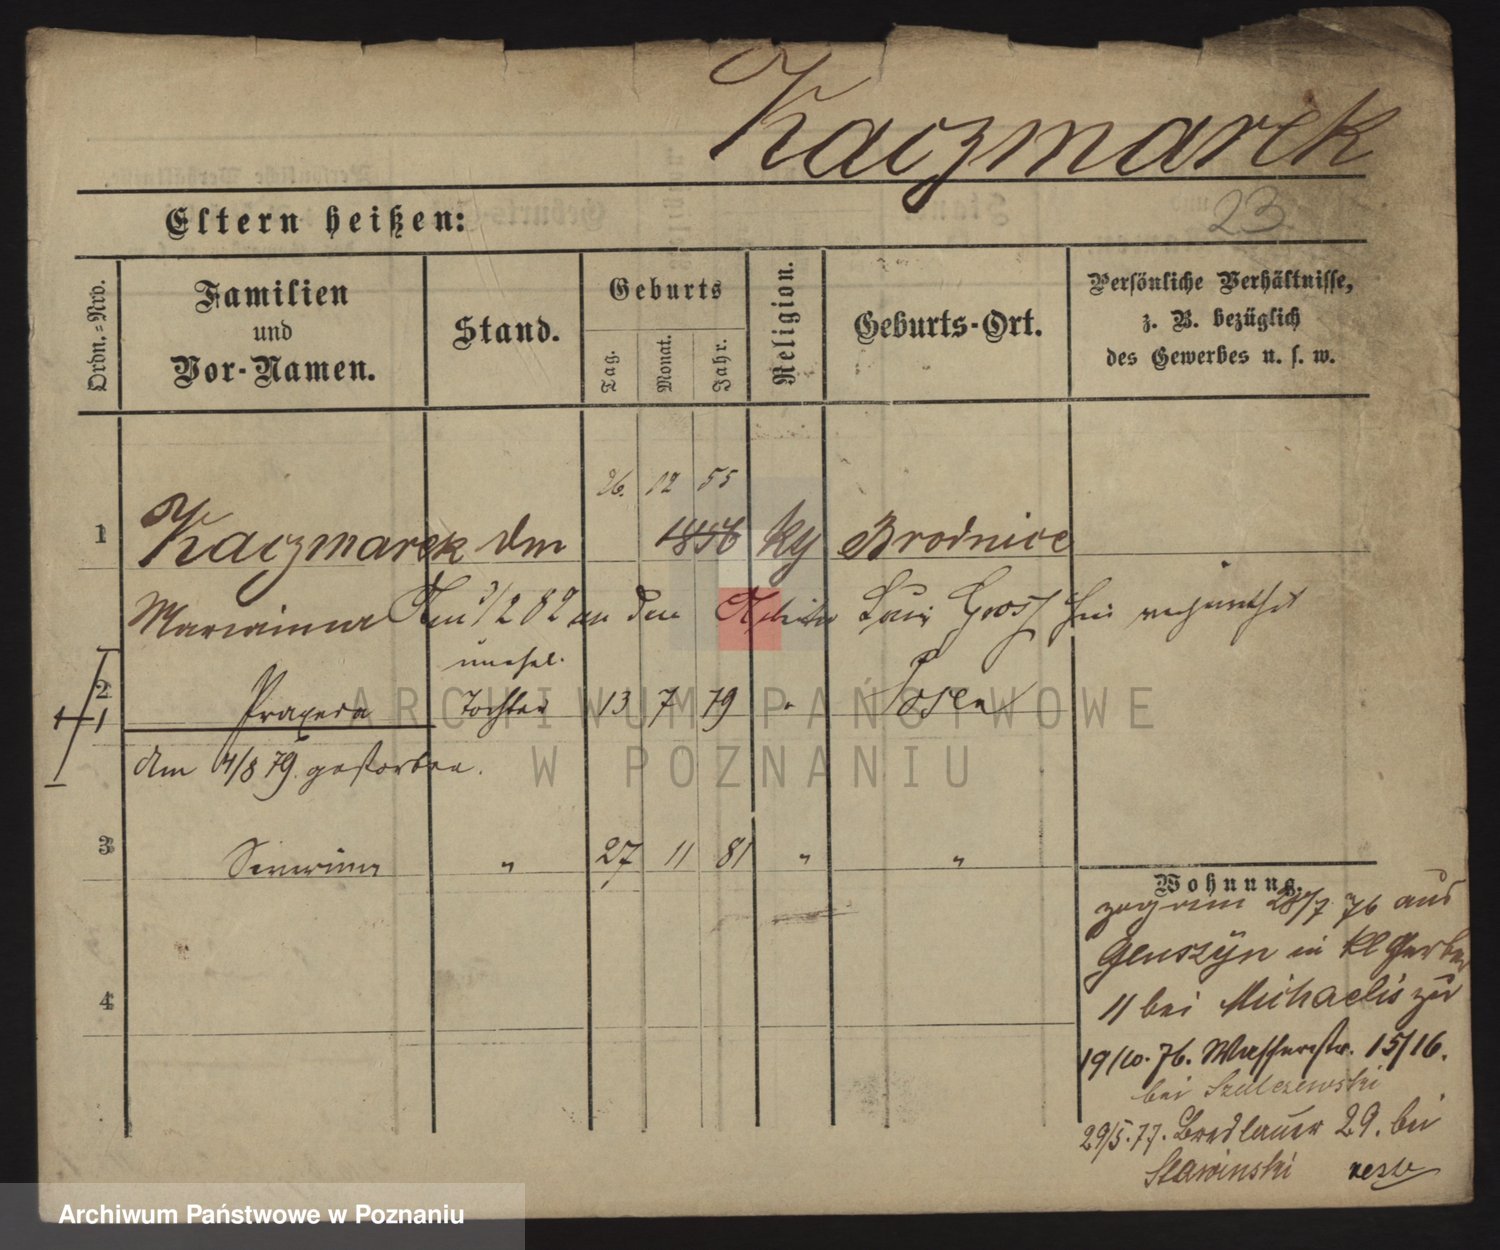 Kaczmarek
23.
Eltern heißen:
Ordn.=Nro.
Familien
und
Vor-Namen.
Stand.
Geburts
Tag.
Monat.
Jahr.
Religion.
Geburts-Ort.
Persönliche Verhältnisse,
z. B. bezüglich
des Gewerbes u. s. w.
26. 12 55
1 Kaczmarek 1856 ky Brodnice
Marianna 3/2 82 an den
unehel.
2 Praxeda Tochter 13 7 79 " Posen
1
den 4/8 79. gestorben.
3 Severina " 27 11 81 " "
4
Wohnung.
28/7 76 aus
in Kl Gerber
11 bei Michaelis zu
19/10. 76. Wasserstr. 15/16.
bei Szulczewski
29/5. 77. Breslauer 29. bei
Slawinski
ARCHIWUM PAŃSTWOWE
W POZNANIU
Archiwum Państwowe w Poznaniu